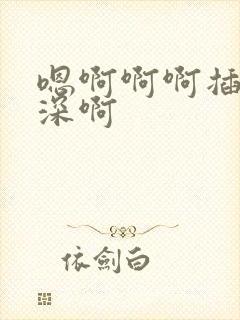 嗯啊啊啊插
深啊
依劍白